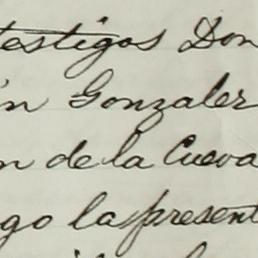 testigos Don
in Gonzalez
n de la Cueva
go la present